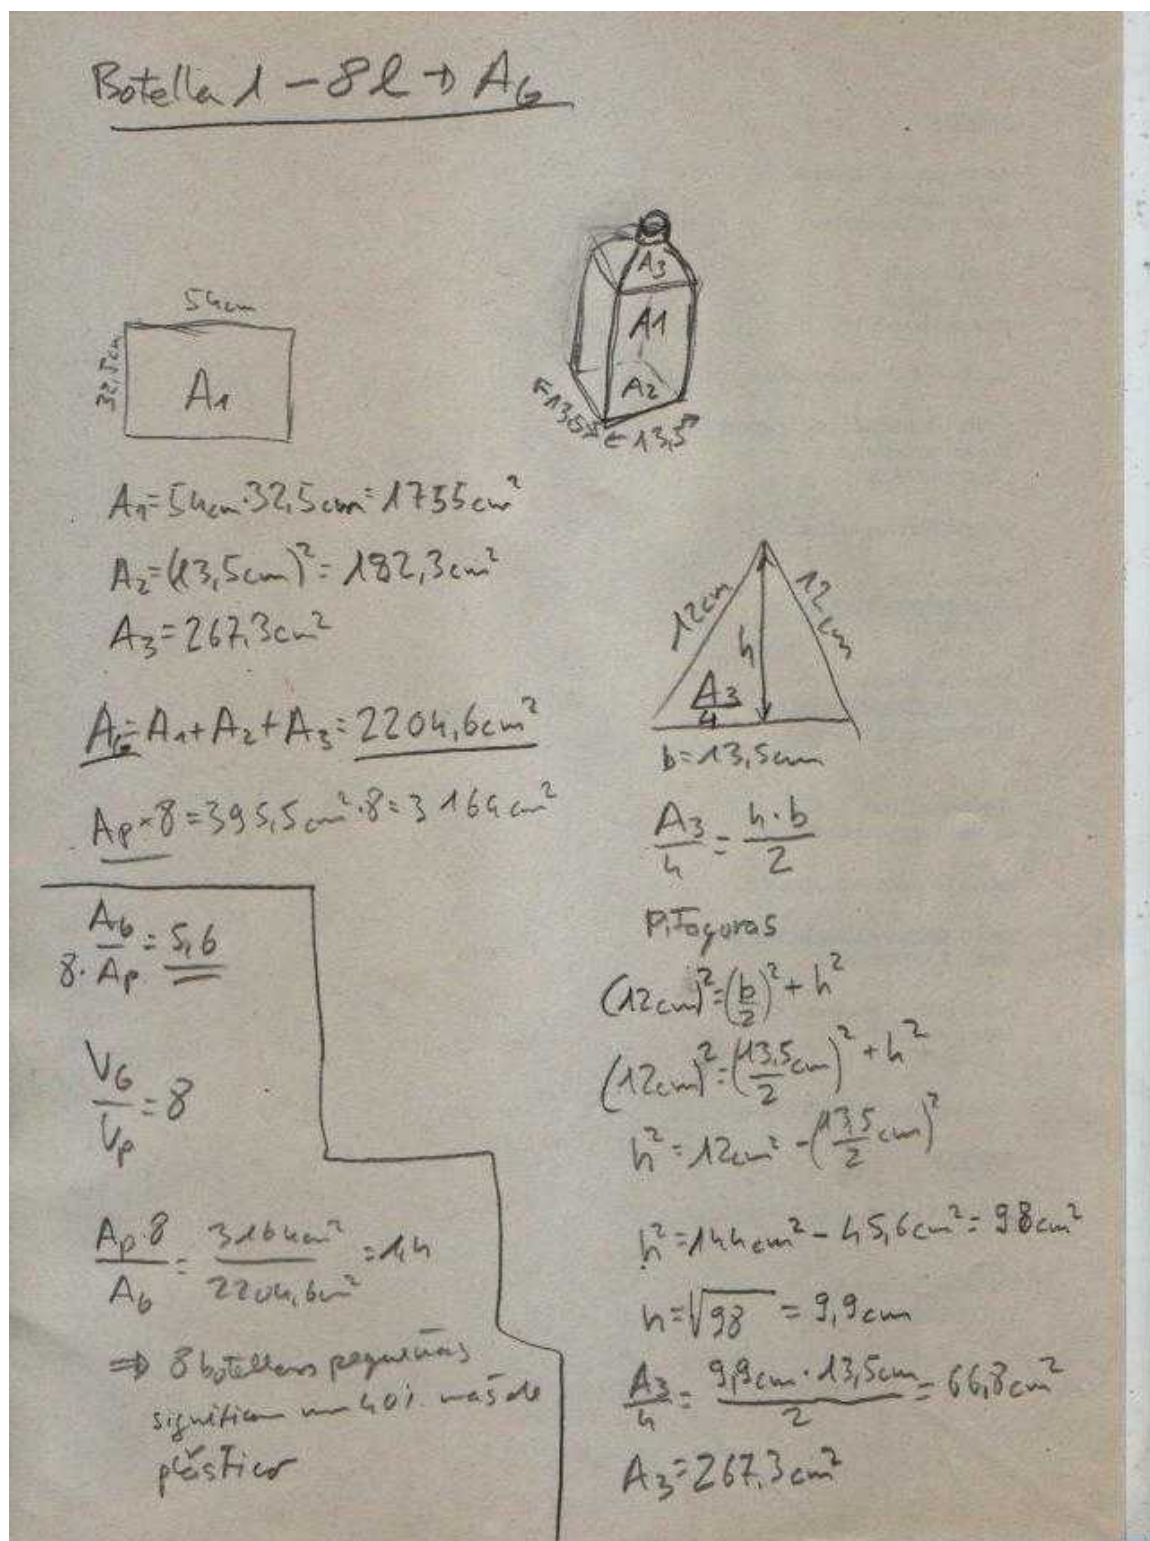 Botella 1 - 8l → AG
54cm
32,5cm
A1
A3
A1
A2
←13,5→
←13,5→
A1=54cm·32,5cm=1755cm²
A2=(13,5cm)²=182,3cm²
A3=267,3cm²
AG=A1+A2+A3=2204,6cm²
Ap×8=395,5cm²·8=3164cm²
AG/8·Ap=5,6
VG/Vp=8
Ap·8/AG=3164cm²/2204,6cm²=1,4
⇒ 8 botellas pequeñas
significan un 40% más de
plástico
12cm
12cm
h
A3/4
b=13,5cm
A3/4=h·b/2
Pitagoras
(12cm)²=(b/2)²+h²
(12cm)²=(13,5/2 cm)²+h²
h²=12cm²-(13,5/2 cm)²
h²=144cm²-45,6cm²=98cm²
h=√98=9,9cm
A3/4=9,9cm·13,5cm/2=66,8cm²
A3=267,3cm²